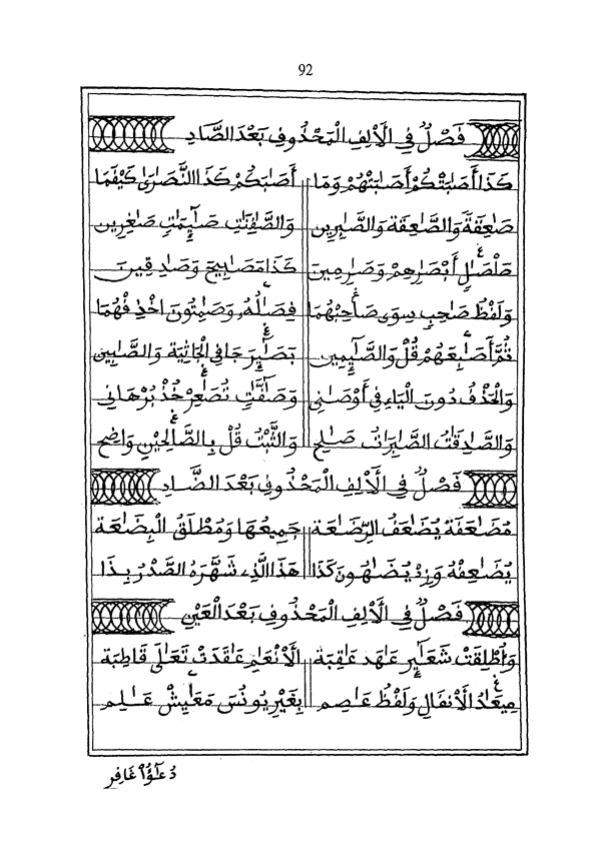 92
فَصْلٌ فِي الْأَلِفِ الْمَحْذُوفِ بَعْدَ الصَّادِ
كَذَا أَصَٰبَتْكُمْ أَصَٰبَتْهُمْ وَمَا أَصَٰبَكُمْ كَذَا النَّصَٰرَىٰ كَيْفَمَا
صَٰعِقَةً وَالصَّٰعِقَةُ وَالصَّٰبِرِين وَالصَّٰفِنَٰتِ صَٰٓئِمَٰتٍ صَٰغِرِين
صَلْصَٰلٍ أَبْصَٰرِهِمْ وَصَٰرِمِينَ كَذَا مَصَٰبِيحَ وَصَٰدِقِينَ
وَلَفْظُ صَٰحِبٍ سِوَى صَاحِبْهُمَا فِصَٰلُهُ وَصَٰمِتُونَ اخْذِفْهُمَا
ثُمَّ أَصَٰبِعَهُمْ قُلْ وَالصَّٰٓئِمِين بَصَٰٓئِرَ جَا فِي الْجَاثِيَةِ وَالصَّٰبِين
وَالْحَذْفُ دُونَ الْيَاءِ فِي أَوْصَٰنِي وَصَٰٓفَّٰتٍ تُصَٰعِرْ خُذْ بُرْهَانِي
وَالصَّٰدِقَٰتُ الصَّٰبِرَٰتُ صَٰلِحِ وَالثَّبْتُ قُلْ بِالصَّالِحَيْنِ وَاضِحِ
فَصْلٌ فِي الْأَلِفِ الْمَحْذُوفِ بَعْدَ الضَّادِ
مُضَٰعَفَةً يُضَٰعَفُ الرِّضَٰعَةَ جَمِيعُهَا وَمُطْلَقُ الْبِضَٰعَةَ
يُضَٰعِفْهُ وَزِدْ يُضَٰهُونَ كَذَا هَذَا الَّذِي شَهَّرَهُ الصَّدْرُ بِذَا
فَصْلٌ فِي الْأَلِفِ الْمَحْذُوفِ بَعْدَ الْعَيْنِ
وَأُطْلِقَتْ شَعَٰٓئِرِ عَٰهَد عَٰقِبَة الْأَنْعَٰمِ عَٰقَدَتْ تَعَٰلَى قَاطِبَة
مِيعَٰدُ الْأَنْفَالِ وَلَفْظُ عَٰصِمِ بِغَيْرِ يُونُسَ مَعَٰيِشْ عَٰلِمِ
دُعَٰٓؤُا۟ غَافِرِ